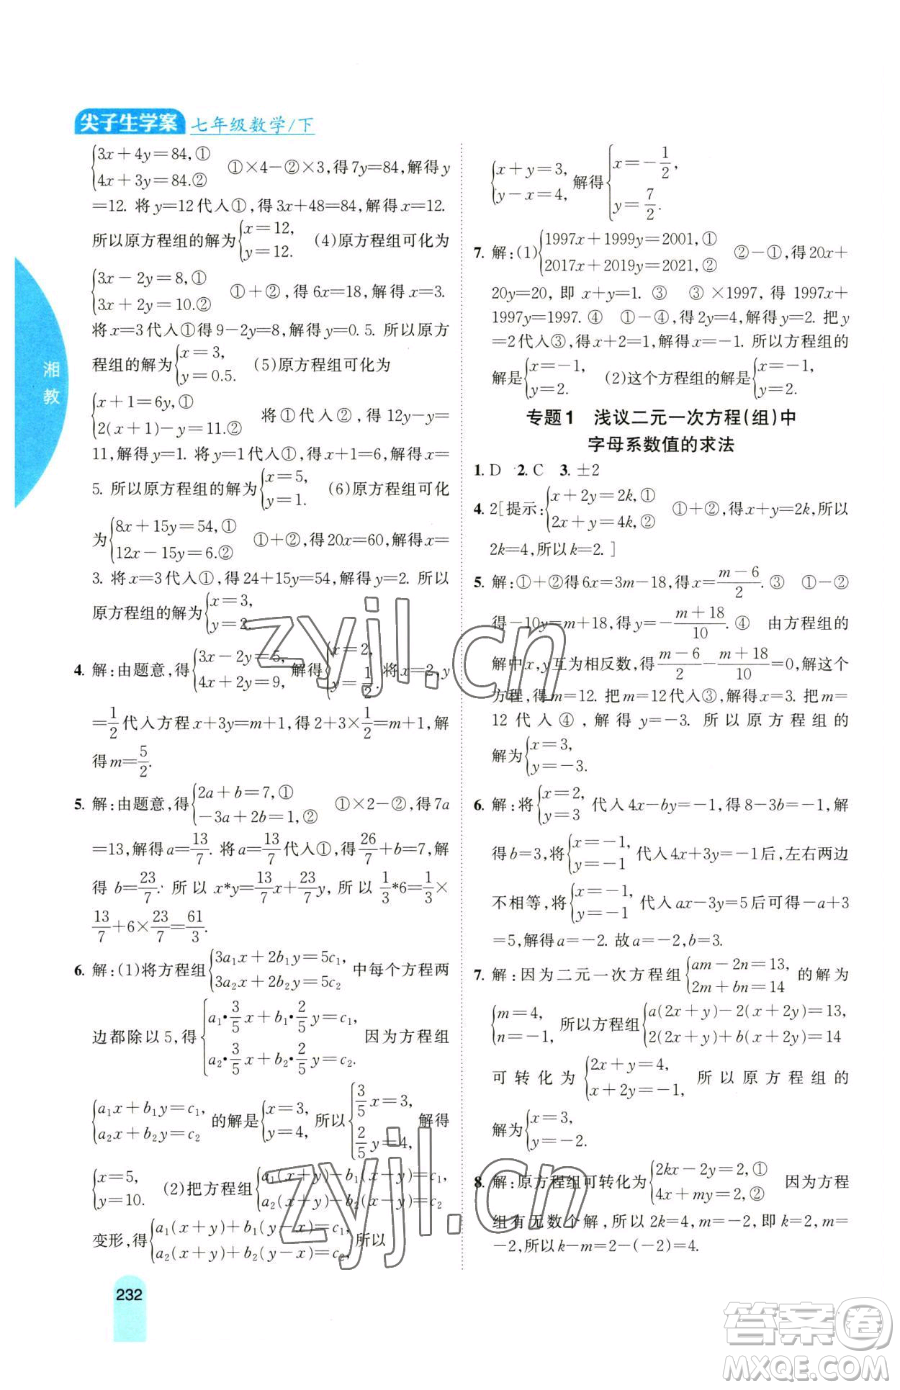 尖子生学案 七年级数学/下
{3x+4y=84,①
4x+3y=84.② ①×4-②×3,得7y=84,解得y
=12. 将y=12代入①,得3x+48=84,解得x=12.
所以原方程组的解为{x=12,
y=12. (4)原方程组可化为
{3x-2y=8,①
3x+2y=10.② ①+②,得6x=18,解得x=3.
将x=3代入①得9-2y=8,解得y=0.5. 所以原方
程组的解为{x=3,
y=0.5. (5)原方程组可化为
{x+1=6y,①
2(x+1)-y=11.② 将①代入②,得12y-y=
11,解得y=1. 将y=1代入①,得x+1=6,解得x=
5. 所以原方程组的解为{x=5,
y=1. (6)原方程组可化
为{8x+15y=54,①
12x-15y=6.② ①+②,得20x=60,解得x=
3. 将x=3代入①,得24+15y=54,解得y=2. 所以
原方程组的解为{x=3,
y=2.
4. 解:由题意,得{3x-2y=5,
4x+2y=9,解得{x=2,
y=1/2. 将x=2,y
=1/2代入方程x+3y=m+1,得2+3×1/2=m+1,解
得m=5/2.
5. 解:由题意,得{2a+b=7,①
-3a+2b=1,② ①×2-②,得7a
=13,解得a=13/7. 将a=13/7代入①,得26/7+b=7,解
得b=23/7. 所以x*y=13/7x+23/7y,所以1/3*6=1/3×
13/7+6×23/7=61/3.
6. 解:(1)将方程组{3a₁x+2b₁y=5c₁
3a₂x+2b₂y=5c₂ 中每个方程两
边都除以5,得{a₁·3/5x+b₁·2/5y=c₁,
a₂·3/5x+b₂·2/5y=c₂. 因为方程组
{a₁x+b₁y=c₁,
a₂x+b₂y=c₂ 的解是{x=3,
y=4,所以{3/5x=3,
2/5y=4,解得
{x=5,
y=10. (2)把方程组{a₁(x+y)-b₁(x-y)=c₁,
a₂(x+y)-b₂(x-y)=c₂
变形,得{a₁(x+y)+b₁(y-x)=c₁,
a₂(x+y)+b₂(y-x)=c₂. 所以
{x+y=3,
y-x=4,解得{x=-1/2,
y=7/2.
7. 解:(1){1997x+1999y=2001,①
2017x+2019y=2021,② ②-①,得20x+
20y=20, 即x+y=1. ③ ③×1997,得1997x+
1997y=1997. ④ ①-④,得2y=4,解得y=2. 把y
=2代入③,得x+2=1,解得x=-1. 所以原方程组的
解是{x=-1,
y=2. (2)这个方程组的解是{x=-1,
y=2.
专题1 浅议二元一次方程(组)中
字母系数值的求法
1. D 2. C 3. ±2
4. 2[提示:{x+2y=2k,①
2x+y=4k,② ①+②,得x+y=2k,所以
2k=4,所以k=2.]
5. 解:①+②得6x=3m-18,得x=m-6/2. ③ ①-②
得-10y=m+18,得y=-m+18/10. ④ 由方程组的
解中x,y互为相反数,得m-6/2-m+18/10=0,解这个
方程,得m=12. 把m=12代入③,解得x=3. 把m=
12代入④,解得y=-3. 所以原方程组的
解为{x=3,
y=-3.
6. 解:将{x=2,
y=3 代入4x-by=-1,得8-3b=-1,解
得b=3,将{x=-1,
y=-1 代入4x+3y=-1后,左右两边
不相等,将{x=-1,
y=-1 代入ax-3y=5后,得-a+3
=5,解得a=-2. 故a=-2,b=3.
7. 解:因为二元一次方程组{am-2n=13,
2m+bn=14 的解为
{m=4,
n=-1,所以方程组{a(2x+y)-2(x+2y)=13,
2(2x+y)+b(x+2y)=14
可转化为{2x+y=4,
x+2y=-1, 所以原方程组的
解为{x=3,
y=-2.
8. 解:原方程组可转化为{2kx-2y=2,①
4x+my=2,② 因为方程
组有无数个解,所以2k=4,-m=2,即k=2,m=
-2,所以k-m=2-(-2)=4.
湘教
232
zyjl.cn
zyjl.cn
答案圈
MXQE.COM